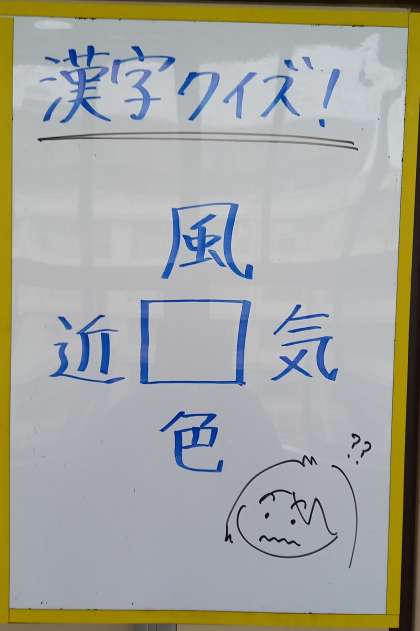 漢字クイズ!
風
近 気
色
??